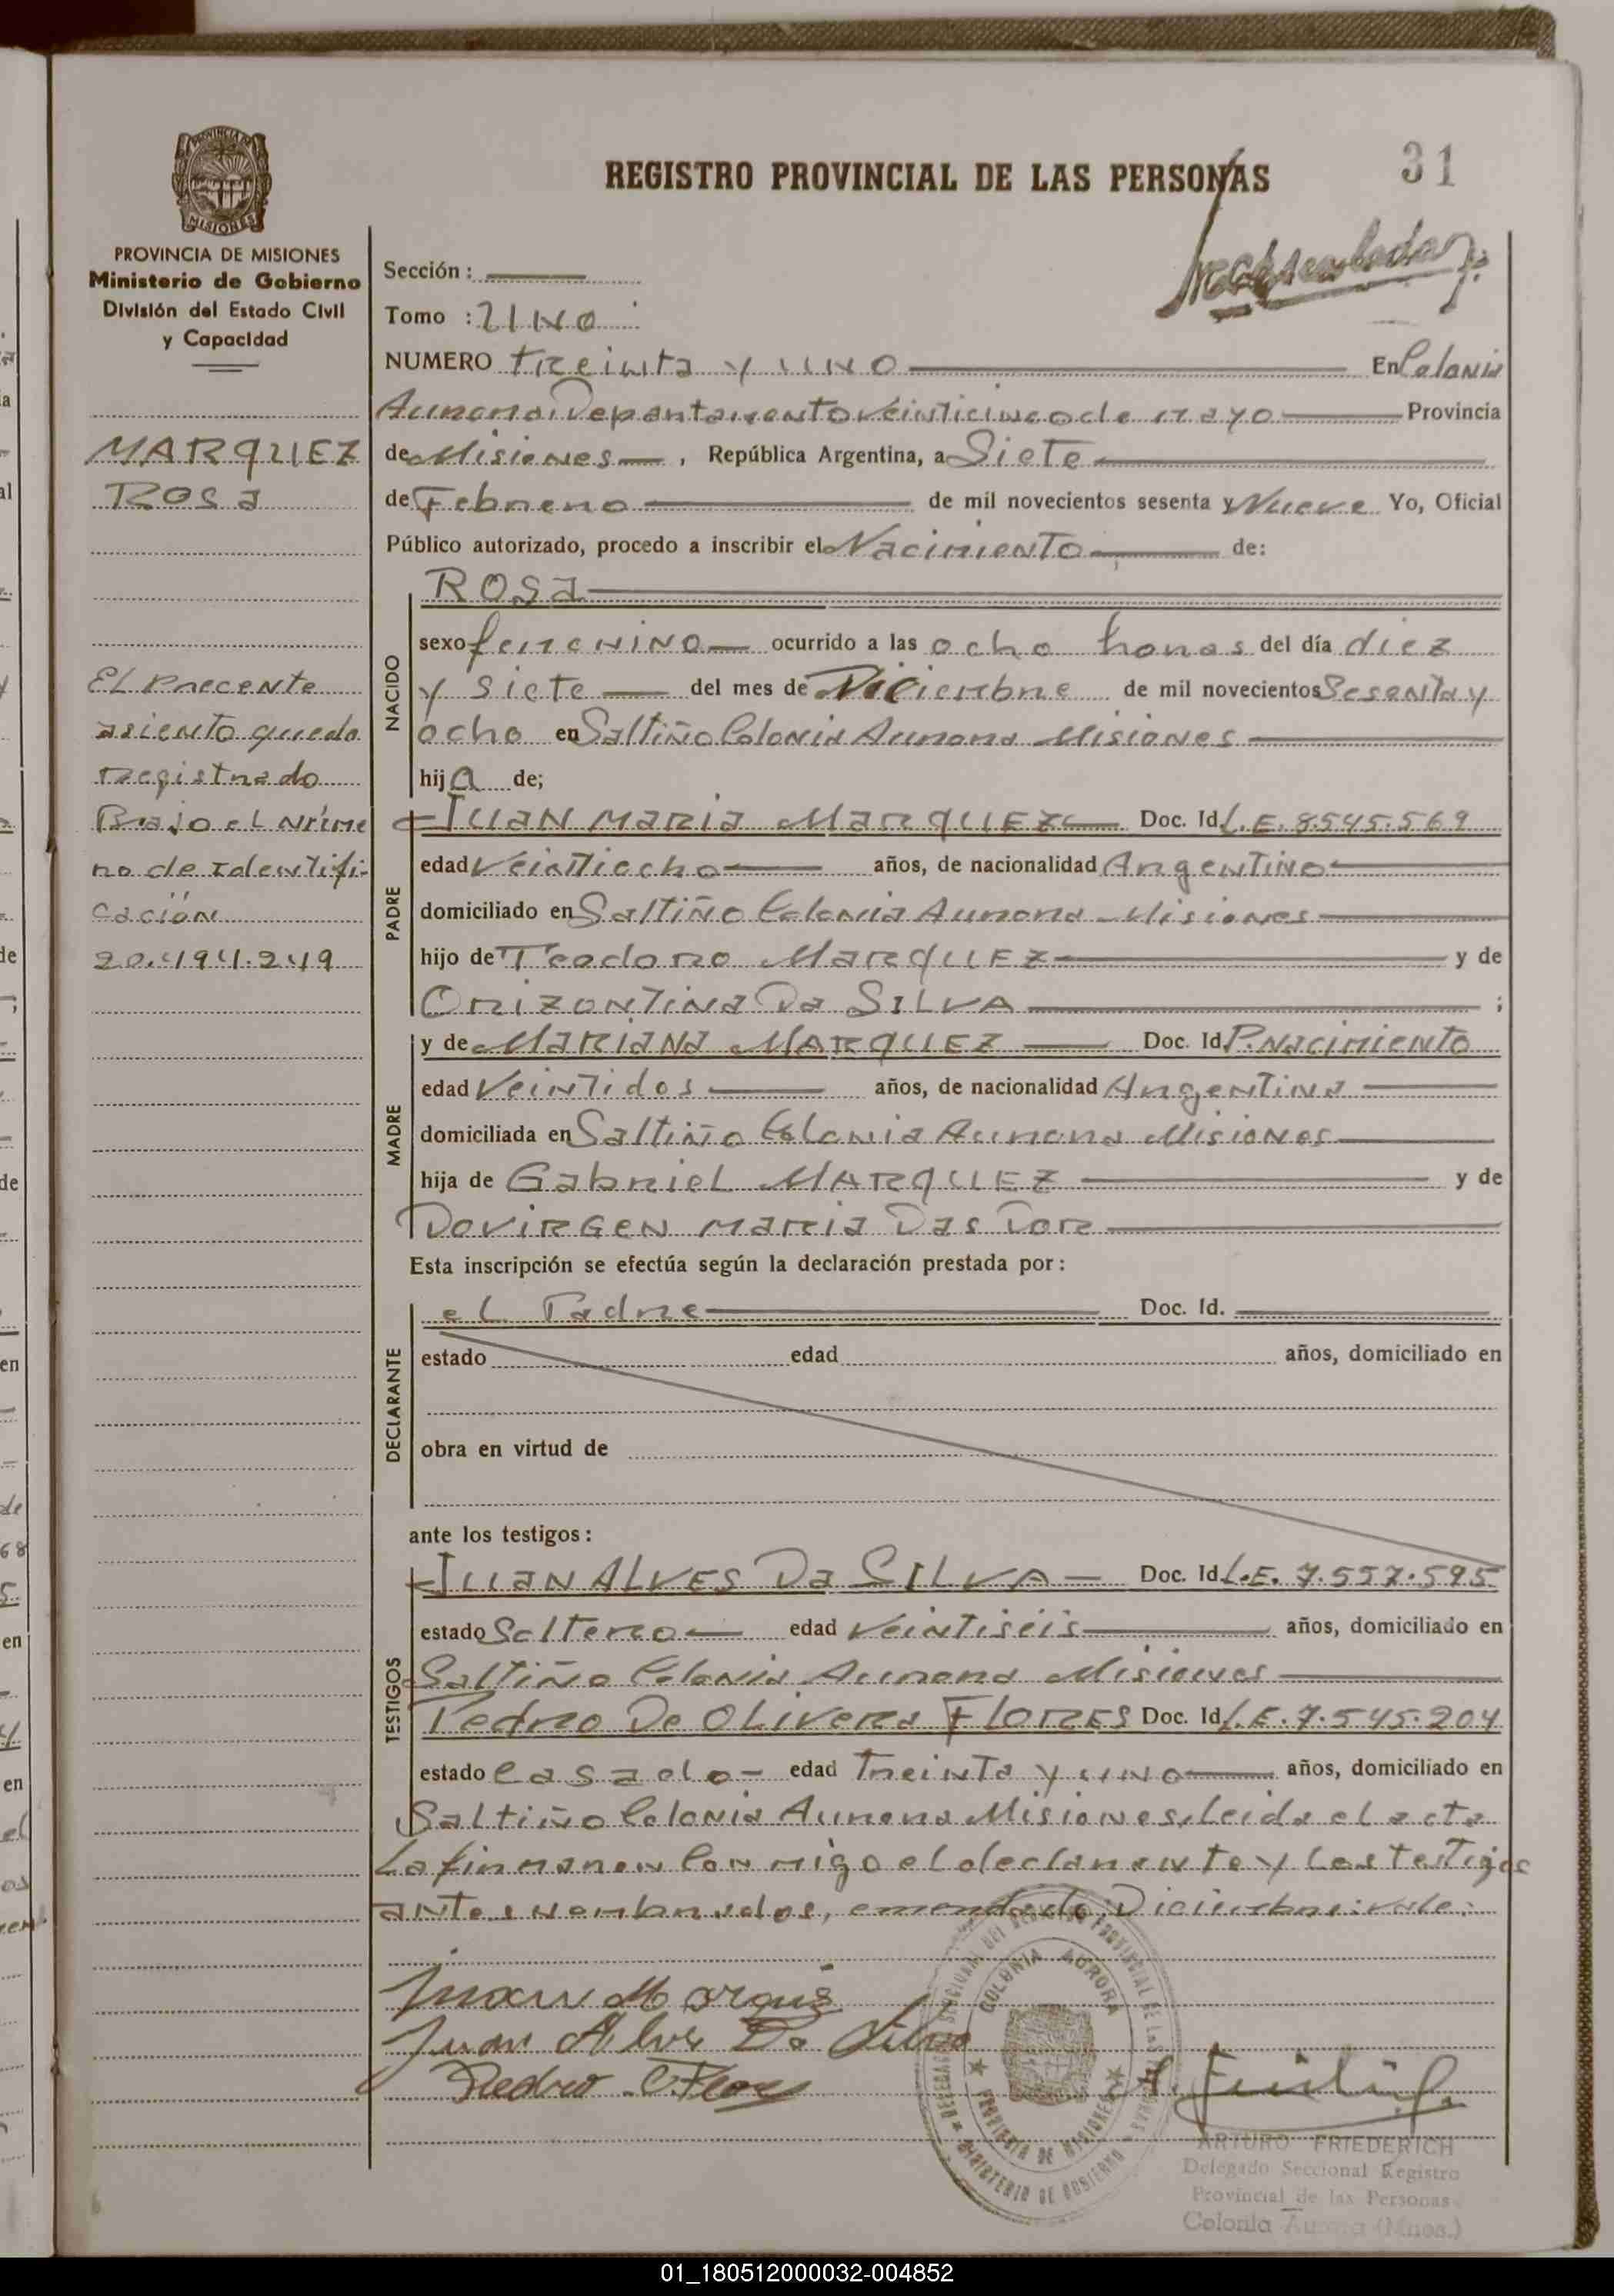 PROVINCIA DE MISIONES
REGISTRO PROVINCIAL DE LAS PERSONAS
31
PROVINCIA DE MISIONES
Ministerio de Gobierno
División del Estado Civil
y Capacidad
MARQUEZ
ROSA
El Precente
asiento quedo
registrado
Bajo el Núme
ro de Identifi-
cación
20.494.249
Sección :
Tomo : UNO
NUMERO treinta y UNO En Colonia
Aurora: Departamento Veinticinco de mayo Provincia
de Misiones , República Argentina, a Siete
de Febrero de mil novecientos sesenta y Nueve Yo, Oficial
Público autorizado, procedo a inscribir el Nacimiento de:
NACIDO
ROSA
sexo femenino ocurrido a las ocho horas del día diez
y siete del mes de Diciembre de mil novecientos Sesenta y
ocho en Saltiño Colonia Aurora Misiones
hij a de;
PADRE
JUAN MARIA MARQUEZ Doc. Id. L.E. 8.545.569
edad Veintiocho años, de nacionalidad Argentino
domiciliado en Saltiño Colonia Aurora Misiones
hijo de Teodoro MARQUEZ y de
ORIZONTINA DA SILVA ;
MADRE
y de MARIANA MARQUEZ Doc. Id. P. Nacimiento
edad Veintidos años, de nacionalidad Argentina
domiciliada en Saltiño Colonia Aurora Misiones
hija de Gabriel MARQUEZ y de
DOVIRGEN MARIA DAS DOR
Esta inscripción se efectúa según la declaración prestada por :
DECLARANTE
el Padre Doc. Id.
estado edad años, domiciliado en
obra en virtud de
ante los testigos :
TESTIGOS
JUAN ALVES DA SILVA Doc. Id. L.E. 7.557.595
estado Soltero edad Veintiséis años, domiciliado en
Saltiño Colonia Aurora Misiones
Pedro De OLIVERA FLORES Doc. Id. L.E. 7.545.204
estado Casado edad Treinta y uno años, domiciliado en
Saltiño Colonia Aurora Misiones, Leida el acta
La firmaron Conmigo el declarante y Los testigos
antes nombrados, emendado: Diciembre: vale:
Juan Marques
Juan Alves Da Silva
Pedro O. Flores
COLONIA AURORA
PROVINCIA DE MISIONES
MINISTERIO DE GOBIERNO
ARTURO FRIEDERICH
Delegado Seccional Registro
Provincial de las Personas
Colonia Aurora (Mnes.)
01_180512000032-004852